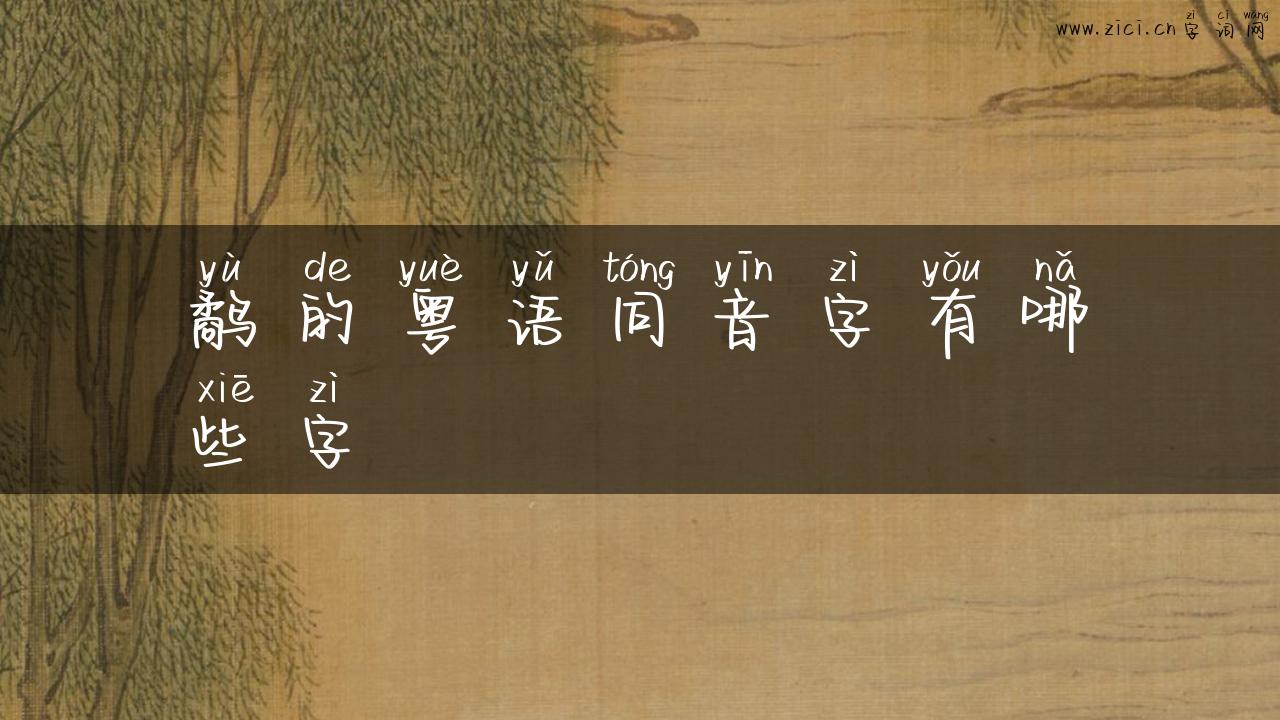 zì cí wǎng
www.zici.cn 字词网
yù de yuè yǔ tóng yīn zì yǒu nǎ
鹬的粤语同音字有哪
xiē zì
些字